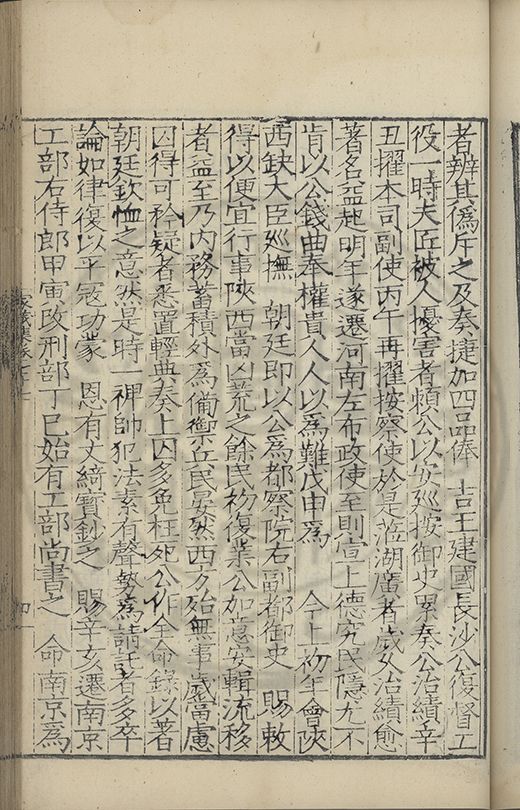 者辨其偽斥之及奏捷加四品俸 吉王建國長沙公復督工
役一時夫匠被人擾害者賴公以安巡按御史累奏公治績辛
丑擢本司副使丙午再擢按察使於是蒞湖廣者歲久治績愈
著名益起明年遂遷河南左布政使至則宣上德究民隱尤不
肯以公錢曲奉權貴人人以為難戊申為 今上初年會陝
西缺大臣巡撫 朝廷即以公為都察院右副都御史 賜敕
得以便宜行事陝西當凶荒之餘民初復業公加意安輯流移
者益至乃內務蓄積外為備禦兵民晏然西方殆無事歲當慮
囚得可矜疑者悉置輕典奏上囚多免枉死公作全命錄以著
朝廷欽恤之意然是時一裨帥犯法素有聲勢為請託者多卒
論如律復以平寇功蒙 恩有文綺寶鈔之 賜辛亥遷南京
工部右侍郎甲寅改刑部丁巳始有工部尚書之 命南京為